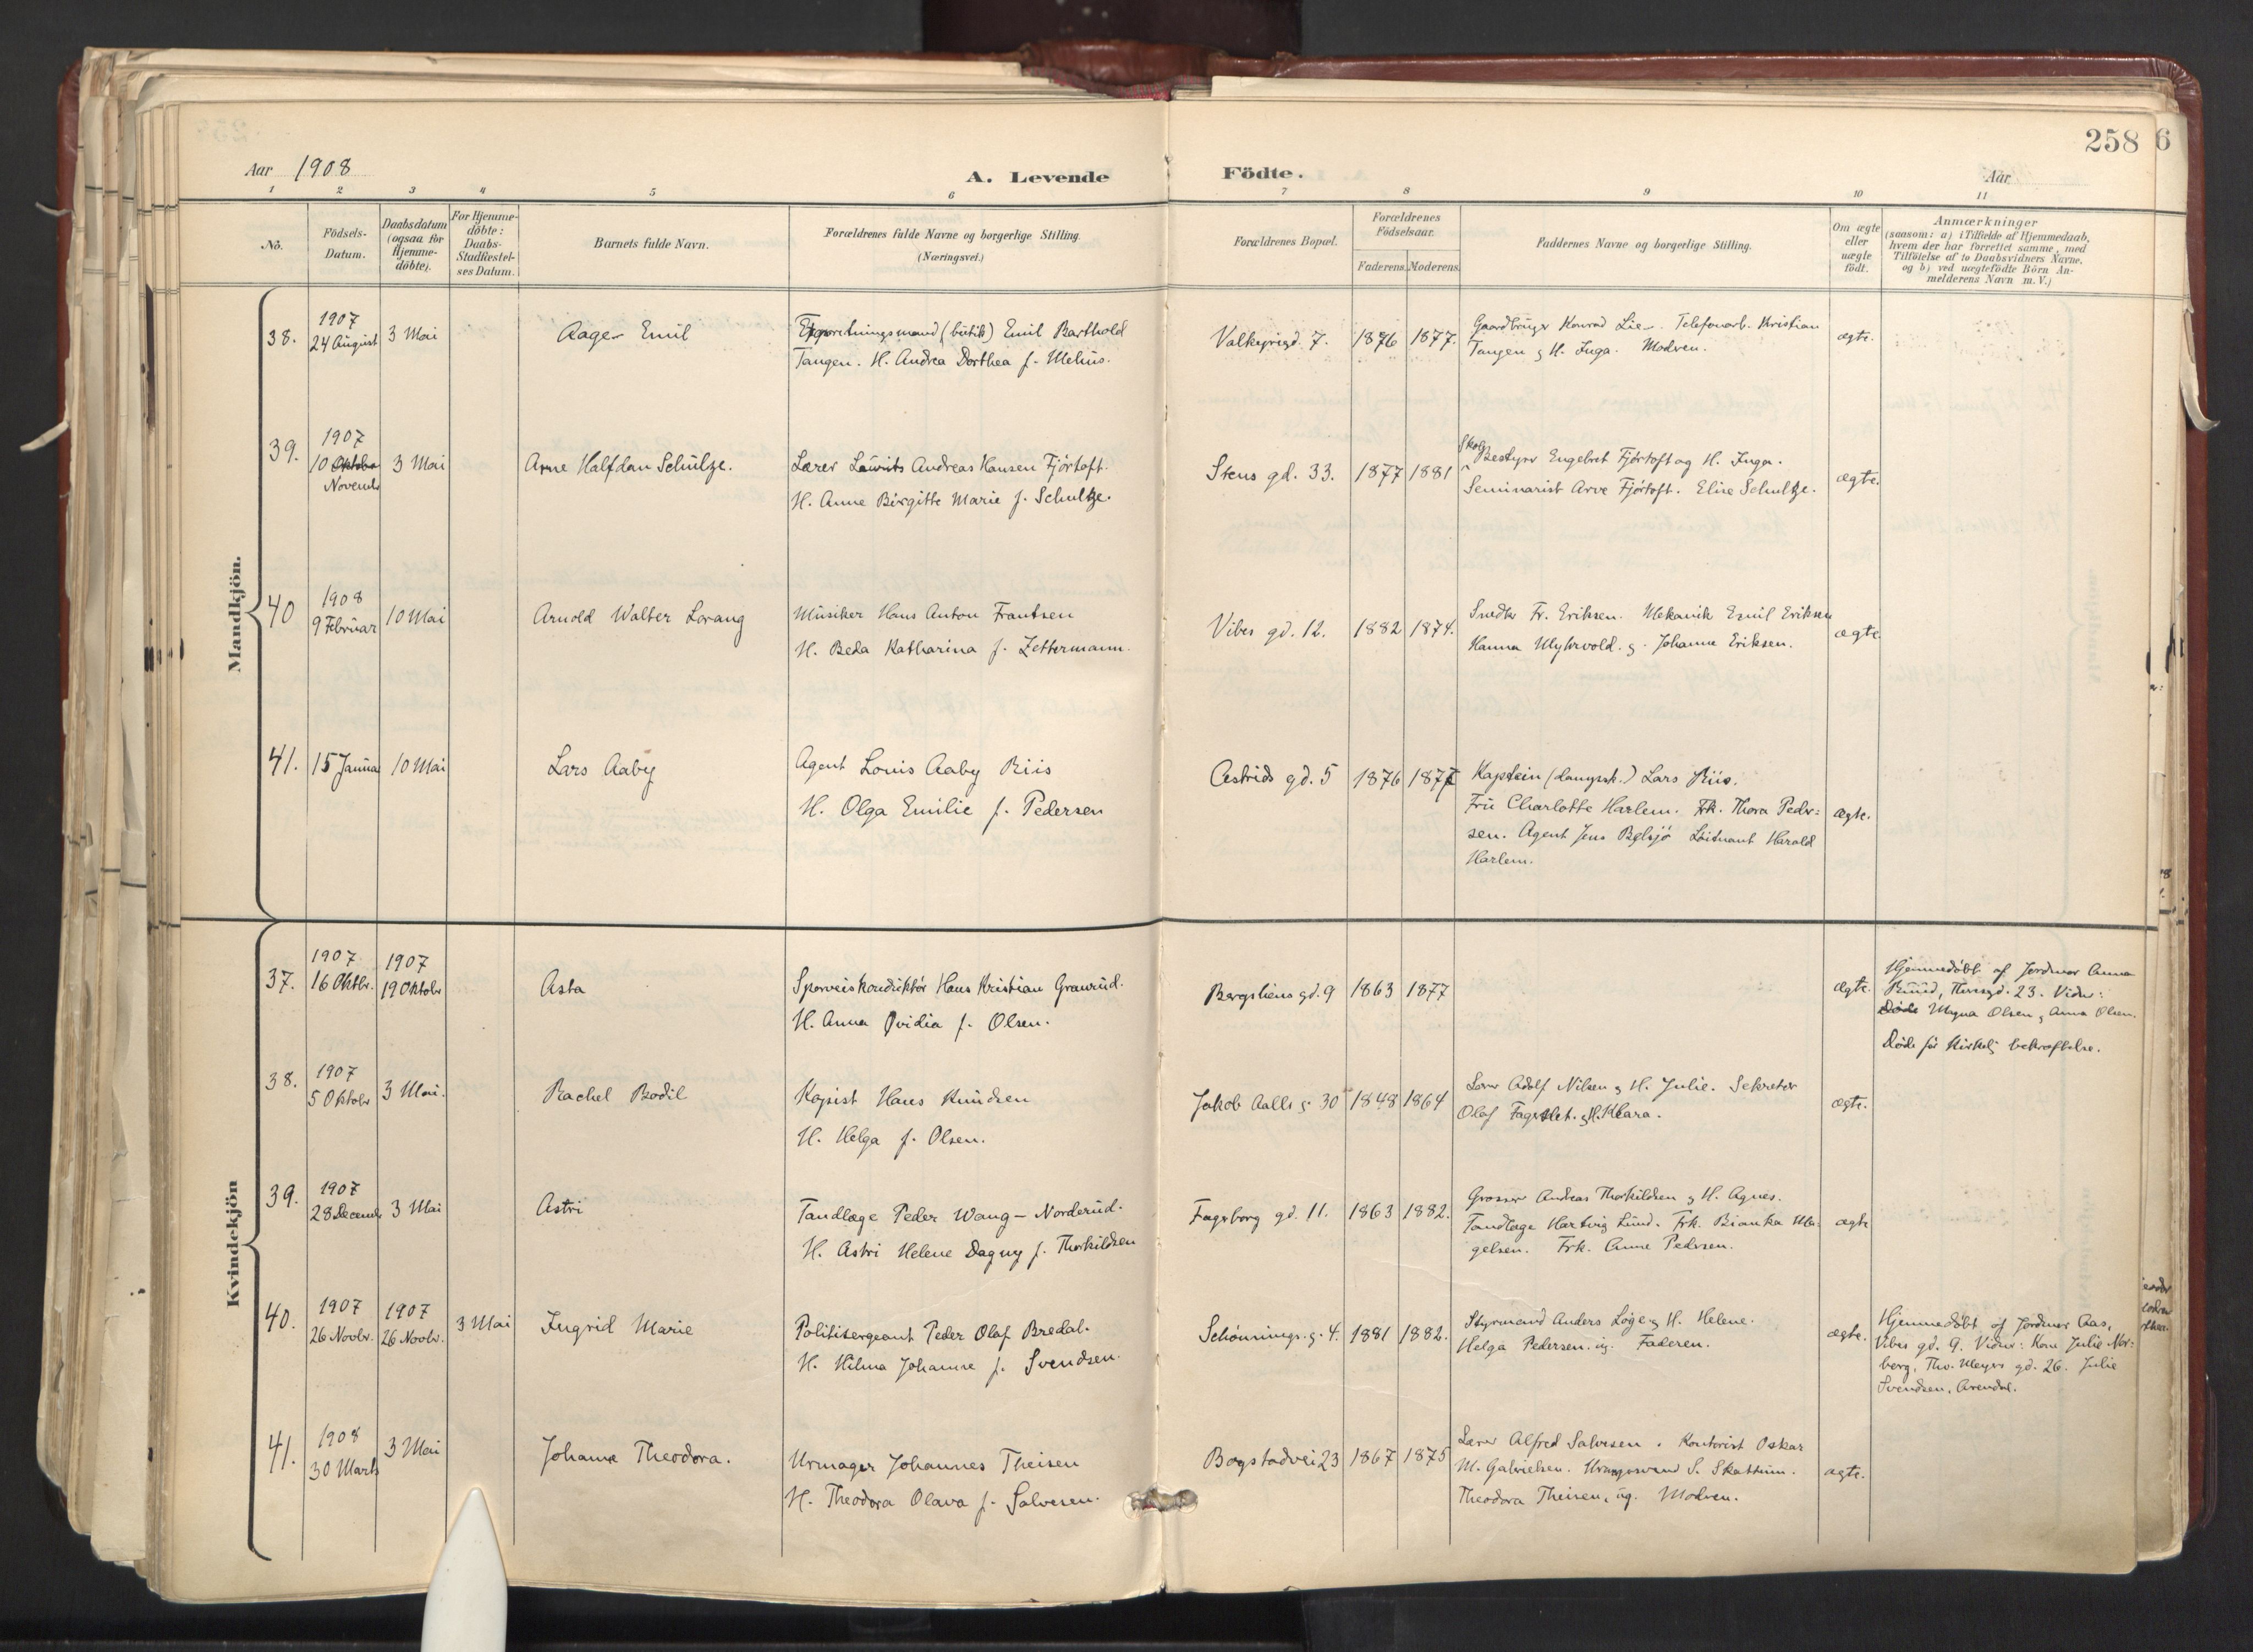 258
6
Aar 1908
A. Levende
Födte.
Aar
1 2 3 4 5 6 7 8 9 10 11
No.
Födsels-
Datum.
Daabsdatum
(ogsaa for
Hjemme-
döbte).
For Hjemme-
döbte:
Daabs-
Stadfæstel-
ses Datum.
Barnets fulde Navn.
Forældrenes fulde Navne og borgerlige Stilling.
(Næringsvei.)
Forældrenes Bopæl.
Forældrenes
Födselsaar.
Faderens. Moderens.
Faddernes Navne og borgerlige Stilling.
Om ægte
eller
uægte
födt.
Anmærkninger
(saasom: a) i Tilfælde af Hjemmedaab,
hvem der har forrettet samme, med
Tilföielse af to Daabsvidners Navne,
og b) ved uægtefödte Börn An-
melderens Navn m. V.)
Mandkjön.
38.
1907
24 August
3 Mai
Aage Emil
Forretningsmand (butik) Emil Barthold
Tangen. H. Andrea Dorthea f. Melius.
Valkyrigd. 7.
1876 1877.
Gaardbruger Konrad Lie. Telefonarb. Kristian
Tangen g H. Inga. Modren.
ægte.
39.
1907
10 Oktober
Novembr
3 Mai
Arne Halfdan Schultze.
Lærer Laurits Andreas Hansen Fjörtoft.
H. Anne Birgitte Marie f. Schultze.
Stens gd. 33.
1877 1881
Skog
Bestyrer Engebret Fjörtoft og H. Inga.
Seminarist Arve Fjörtoft. Elise Schultze.
ægte.
40
1908
9 Februar
10 Mai
Arnold Walter Lorang
Musiker Hans Anton Frantsen
H. Beda Katharina f. Zettermann.
Vibes gd. 12.
1882 1874.
Snedker Fr. Eriksen. Mekanik Emil Eriksen
Hanna g. Johanne Eriksen.
ægte
41.
15 Januar
10 Mai
Lars Aaby
Agent Louis Aaby Riis
H. Olga Emilie f. Pedersen
Astrids gd. 5
1876 1877
Kaptein (dampsk.) Lars Riis.
Fru Charlotte Harlem. Frk. Thora Peder=
sen. Agent Jens Løitnant Harald
Harlem.
ægte.
Kvindekjön
37.
1907
16 Oktbr.
1907
19 Oktobr
Asta
Sporveiskonduktör Hans Kristian Granrud.
H. Anna Ovidia f. Olsen.
Bergsliens gd. 9
1863 1877
ægte.
Hjemmedøbt af Jordmor Anna
Ruud, Thersgd. 23. Vidner:
Døde Magna Olsen g Anna Olsen.
Døde før kirkelig bekræftelse.
38.
1907
5 Oktobr
3 Mai.
Rachel Bodil
Kopist Hans Knudsen
H. Helga f. Olsen.
Jakob Aalls g. 30
1848 1864
Lærer Adolf Nilsen g H. Julie. Sekretær
Olaf Fagerslet. g H. Klara.
ægte.
39.
1907
28 Decembr
3 Mai
Astri
Tandlæge Peder Wang - Norderud.
H. Astri Helene Dagny f. Thorkildsen
Fagerborg gd. 11.
1863 1882.
Grosser Andreas Thorkildsen g H. Agnes.
Tandlæge Hartvig Lund. Frk. Bianka
gelsen. Frk. Anne Pedersen.
ægte
40.
1907
26 Novbr.
1907
26 Novbr.
3 Mai
Ingrid Marie
Politisergeant Peder Olaf Bredal.
H. Hilma Johanne f. Svendsen.
Schønnings. g. 4.
1881 1882.
Styrmand Anders Løge g H. Helene.
Helga Pedersen. ug. Faderen.
ægte.
Hjemmedøbt af Jordmor Aas,
Vibes gd. 9. Vidner: Kone Julie Nor=
berg, Thv. Meyers gd. 26. Julie
Svendsen, Arendal.
41.
1908
30 Marts
3 Mai
Johanne Theodora.
Urmager Johannes Theisen
H. Theodora Olava f. Salvesen.
Bogstadvei 23
1867 1875
Lærer Alfred Salvesen. Kontorist Oskar
M. Gabrielsen. S. Skattum.
Theodora Theisen, ug. Modren.
ægte.